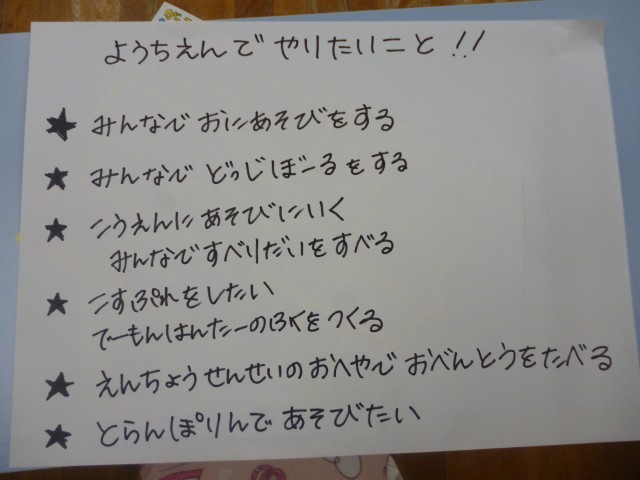 ようちえんで やりたいこと!!
★ みんなで おにあそびをする
★ みんなで どっじぼーるをする
★ こうえんに あそびにいく
みんなですべりだいをすべる
★ こすぷれをしたい
でーもんはんたーのふくをつくる
★ えんちょうせんせいのおへやで おべんとうをたべる
★ とらんぽりんで あそびたい